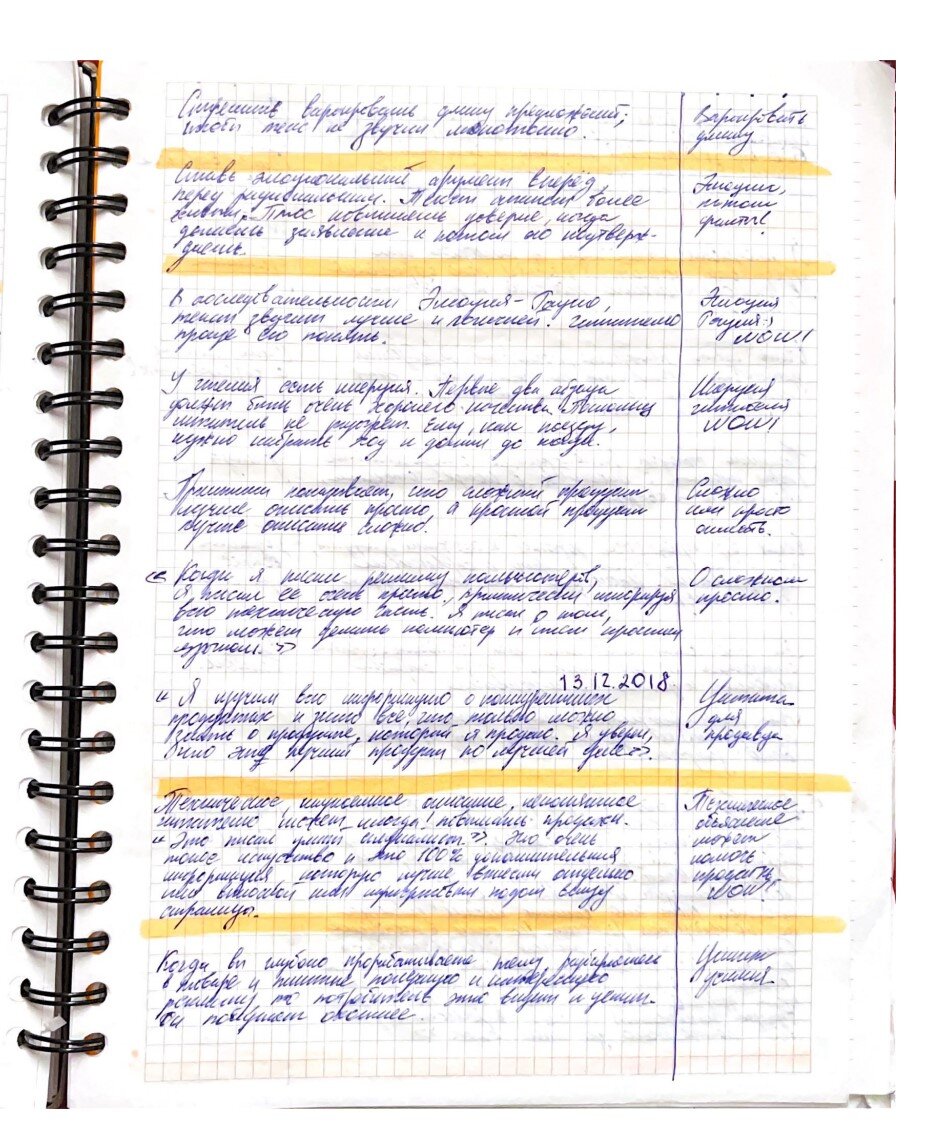 Стремитесь варьировать длину предложений,
чтобы текст не звучал монотонно.
Варьировать
длину
Ставь эмоциональный аргумент вперёд,
перед рациональным. Текст станет более
живым. Плюс повышаешь доверие, когда
делаешь заявление и потом его подтверж-
даешь.
Эмоции,
потом
факты!
В последовательности Эмоция-Рацио,
текст звучит лучше и логичней. Читателю
проще его понять.
Эмоция
Рацио:)
WOW!
У чтения есть инерция. Первые два абзаца
должны быть очень хорошего качества.
читатель не Ему, как поезду,
нужно набрать ход и дойти до конца.
Инерция
читателя
WOW!
Практики показывают, что сложный продукт
лучше описать просто, а простой продукт
лучше описать сложно.
Сложно
или просто
описать.
« Когда я писал рекламу
я писал её очень просто, практически игнорируя
всю техническую часть. Я писал о том,
что может делать компьютер и писал простым
языком. »
О сложном
просто.
13.12.2018
« Я изучил всю информацию о конкурентных
продуктах и знаю всё, что только можно
знать о продукте, который я продаю. Я уверен,
что это лучший продукт по лучшей цене ».
Цитата
для
продавца.
Техническое, описание, непонятное
читателю может иногда повышать продажи.
« Это писал умный специалист ». Это очень
тонкое искусство и это 100% дополнительная
информация которую лучше вынести отдельно
или внизу
страницы.
Техническое
объяснение
может
помочь
продать.
WOW!
Когда вы глубоко прорабатываете тему, разбираетесь
в товаре и пишите полезную и интересную
рекламу, то потребитель это видит и ценит.
Он покупает охотнее.
Ценят
усилия